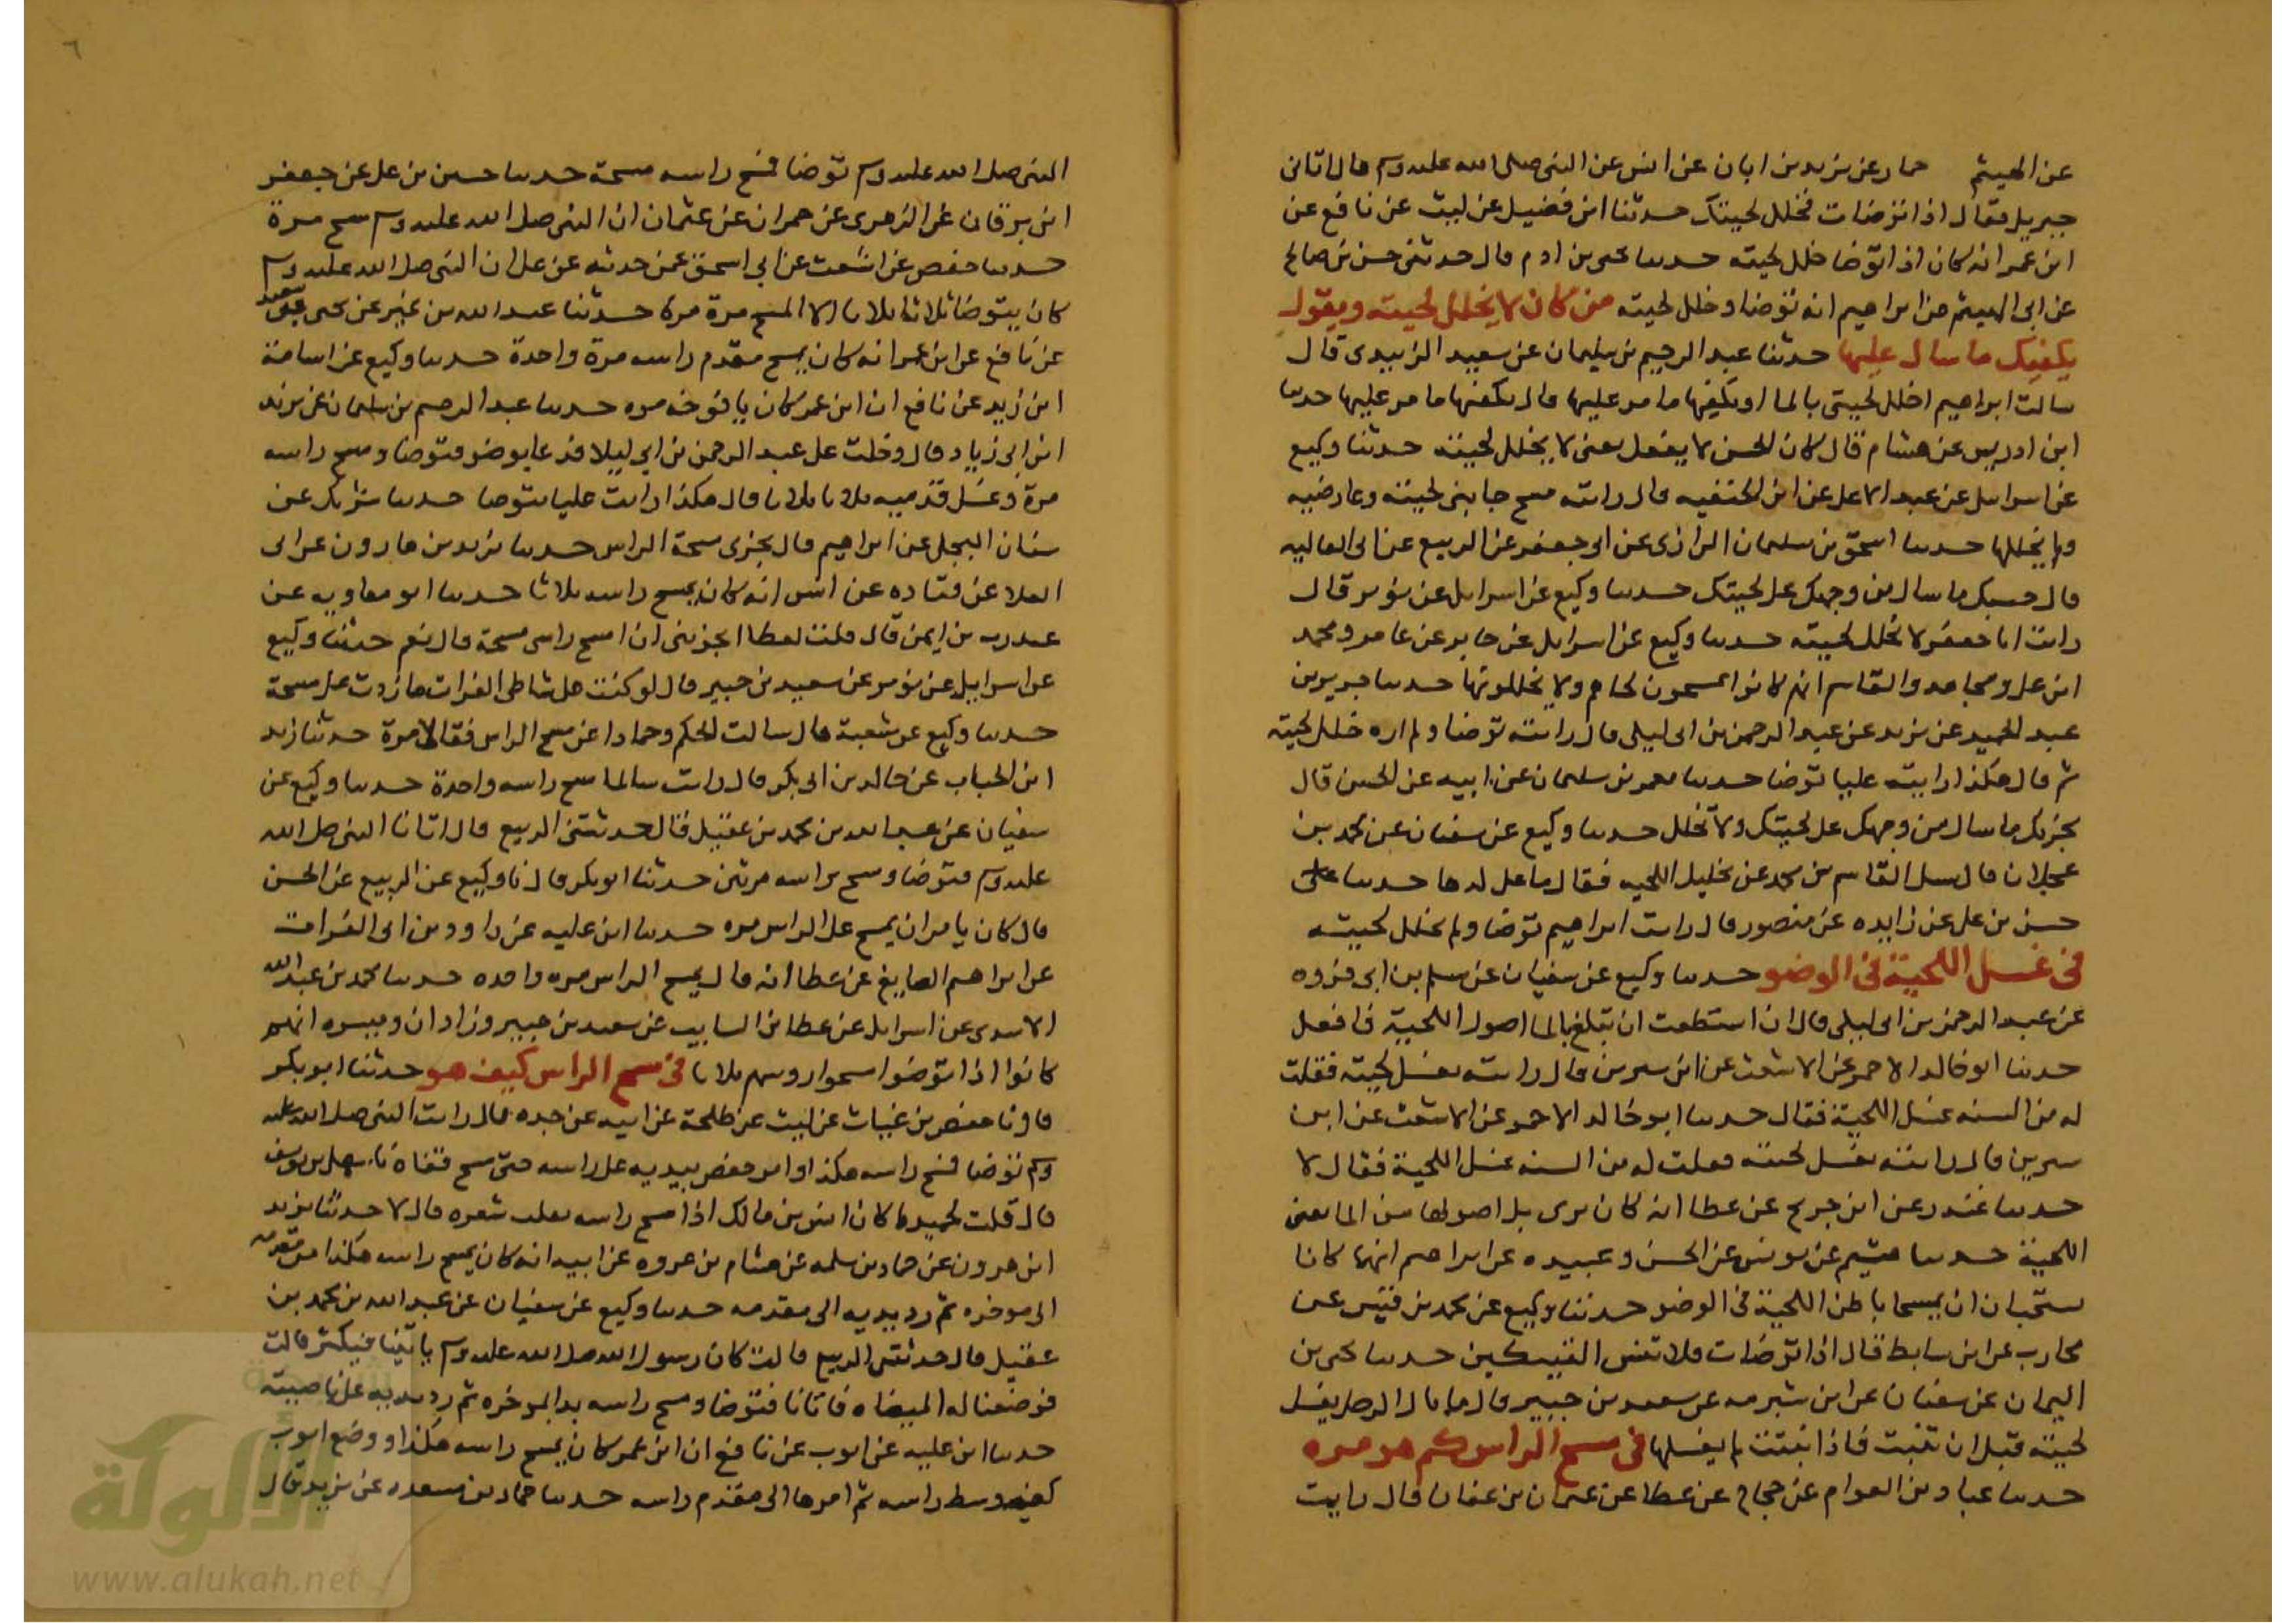 عن الهيثم حماد عن يزيد بن ابان عن انس عن النبي صلى الله عليه وسلم قال اتاني
جبريل فقال اذا توضات فخلل لحيتك حدثنا ابن فضيل عن ليث عن نافع عن
ابن عمر انه كان اذا توضا خلل لحيته حدثنا يحيى بن ادم قال حدثني حسن بن صالح
عن ابي الهيثم عن ابراهيم انه توضا وخلل لحيته من كان لا يخلل لحيته ويقول
يكفيك ما سال عليها حدثنا عبد الرحيم بن سليمان عن سعيد الزبيدي قال
سالت ابراهيم اخلل لحيتي بالما او يكفيها ما مر عليها قال يكفيها ما مر عليها حدثنا
ابن ادريس عن هشام قال كان الحسن لا يفعل يعني لا يخلل لحيته حدثنا وكيع
عن اسرايل عن عبد الاعلى عن ابن الحنفيه قال رايته مسح جانبي لحيته وعارضيه
ولم يخللها حدثنا اسحق بن سليمان الرازي عن ابي جعفر عن الربيع عن ابي العاليه
قال حسبك ما سال من وجهك على لحيتك حدثنا وكيع عن اسرايل عن ثوير قال
رايت ابا جعفر لا يخلل لحيته حدثنا وكيع عن اسرايل عن جابر عن عامر ومحمد
ابن علي ومجاهد والقاسم انهم كانوا يمسحون لحاهم ولا يخللونها حدثنا جرير بن
عبد الحميد عن يزيد عن عبد الرحمن بن ابي ليلى قال رايته توضا ولم اره خلل لحيته
ثم قال هكذا رايت عليا توضا حدثنا معمر بن سليمان عن ابيه عن الحسن قال
يجزيك ما سال من وجهك على لحيتك ولا تخلل حدثنا وكيع عن سفيان عن محمد بن
عجلان قال سئل القاسم بن محمد عن تخليل اللحيه فقال ما على لدها حدثنا
حسن بن علي عن زايده عن منصور قال رايت ابراهيم توضا ولم يخلل لحيته
في غسل اللحية في الوضو حدثنا وكيع عن سفيان عن مسلم بن ابي فروه
عن عبد الرحمن بن ابي ليلى قال ان استطعت ان تبلغ بالما اصول اللحية فافعل
حدثنا ابو خالد الاحمر عن الاشعث عن ابن سيرين قال رايته يغسل لحيته فقلت
له من السنه غسل اللحية فقال حدثنا ابو خالد الاحمر عن الاشعث عن ابن
سيرين قال رايته يغسل لحيته فقلت له من السنه غسل اللحية فقال لا
حدثنا غندر عن ابن جريج عن عطا انه كان يرى بل اصولها من الما يعني
اللحية حدثنا هشيم عن يونس عن الحسن وعبيده عن ابراهيم انهما كانا
يستحبان ان يمسحا باطن اللحية في الوضو حدثنا وكيع عن محمد بن قيس عن
محارب عن ابن سابط قال اذا توضات فلا تنس الفنيكين حدثنا يحيى بن
اليمان عن سفيان عن ابن شبرمه عن سعيد بن جبير قال ما بال الرجل يغسل
لحيته قبل ان تنبت فاذا نبتت لم يغسلها في مسح الراس كم هو مره
حدثنا عباد بن العوام عن حجاج عن عطا عن عثمان بن عفان قال رايت
٦
النبي صلى الله عليه وسلم توضا فمسح راسه مسحة حدثنا حسين بن علي عن جعفر
ابن برقان عن الزهري عن حمران عن عثمان ان النبي صلى الله عليه وسلم مسح مرة
حدثنا حفص عن اشعث عن ابي اسحق عمن حدثه عن علي ان النبي صلى الله عليه وسلم
كان يتوضا ثلاثا ثلاثا الا المسح مرة مرة حدثنا عبد الله بن نمير عن يحيى بن سعيد
عن نافع عن ابن عمر انه كان يمسح مقدم راسه مرة واحدة حدثنا وكيع عن اسامة
ابن زيد عن نافع ان ابن عمر كان يافوخه مره حدثنا عبد الرحيم بن سليمان عن يزيد
ابن ابي زياد قال دخلت على عبد الرحمن بن ابي ليلا فدعا بوضو فتوضا ومسح راسه
مرة وغسل قدميه ثلاثا ثلاثا وقال هكذا رايت عليا يتوضا حدثنا شريك عن
سنان البجلي عن ابراهيم قال يجزي مسحة الراس حدثنا يزيد بن هارون عن ابي
العلا عن قتاده عن انس انه كان يمسح راسه ثلاثا حدثنا ابو معاويه عن
عبد رب بن ايمن قال قلت لعطا ايجزيني ان امسح راسي مسحة قال نعم حدثنا وكيع
عن اسرايل عن ثوير عن سعيد بن جبير قال لو كنت على شاطي الفرات ما زدت على مسحة
حدثنا وكيع عن شعبة قال سالت الحكم وحمادا عن مسح الراس فقالا مرة حدثنا زيد
ابن الحباب عن خالد بن ابي بكر قال رايت سالما مسح راسه واحدة حدثنا وكيع عن
سفيان عن عبد الله بن محمد بن عقيل قال حدثتني الربيع قال اتانا النبي صلى الله
عليه وسلم فتوضا ومسح براسه مرتين حدثنا ابو بكر قال نا وكيع عن الربيع عن الحسن
قال كان يامر ان يمسح على الراس مره حدثنا ابن عليه عن داود بن ابي الفرات
عن ابراهيم الصايغ عن عطا انه قال يمسح الراس مره واحده حدثنا محمد بن عبد الله
الاسدي عن اسرايل عن عطا بن السايب عن سعيد بن جبير وزادان وميسره انهم
كانوا اذا توضوا مسحوا روسهم ثلاثا في مسح الراس كيف هو حدثنا ابو بكر
قال نا حفص بن غياث عن ليث عن طلحة عن ابيه عن جده قال رايت النبي صلى الله عليه
وسلم توضا فمسح راسه هكذا وامر حفص بيديه على راسه حتى مسح قفاه نا سهل بن يوسف
قال قلت لحميد اكان انس بن مالك اذا مسح راسه يقلب شعره قال لا حدثنا يزيد
ابن هرون عن حماد بن سلمه عن هشام بن عروه عن ابيه انه كان يمسح راسه هكذا من مقدمه
الى موخره ثم رد يديه الى مقدمه حدثنا وكيع عن سفيان عن عبد الله بن محمد بن
عقيل قال حدثتني الربيع قالت كان رسول الله صلى الله عليه وسلم ياتينا فيكثر قالت
فوضعنا له الميضاه فاتانا فتوضا ومسح راسه بدا بموخره ثم رد يديه على ناصيته
حدثنا ابن عليه عن ايوب عن نافع ان ابن عمر كان يمسح راسه هكذا ووضع ايوب
كفه وسط راسه ثم امرها الى مقدم راسه حدثنا حماد بن مسعده عن يزيد قال
الألوكة
www.alukah.net